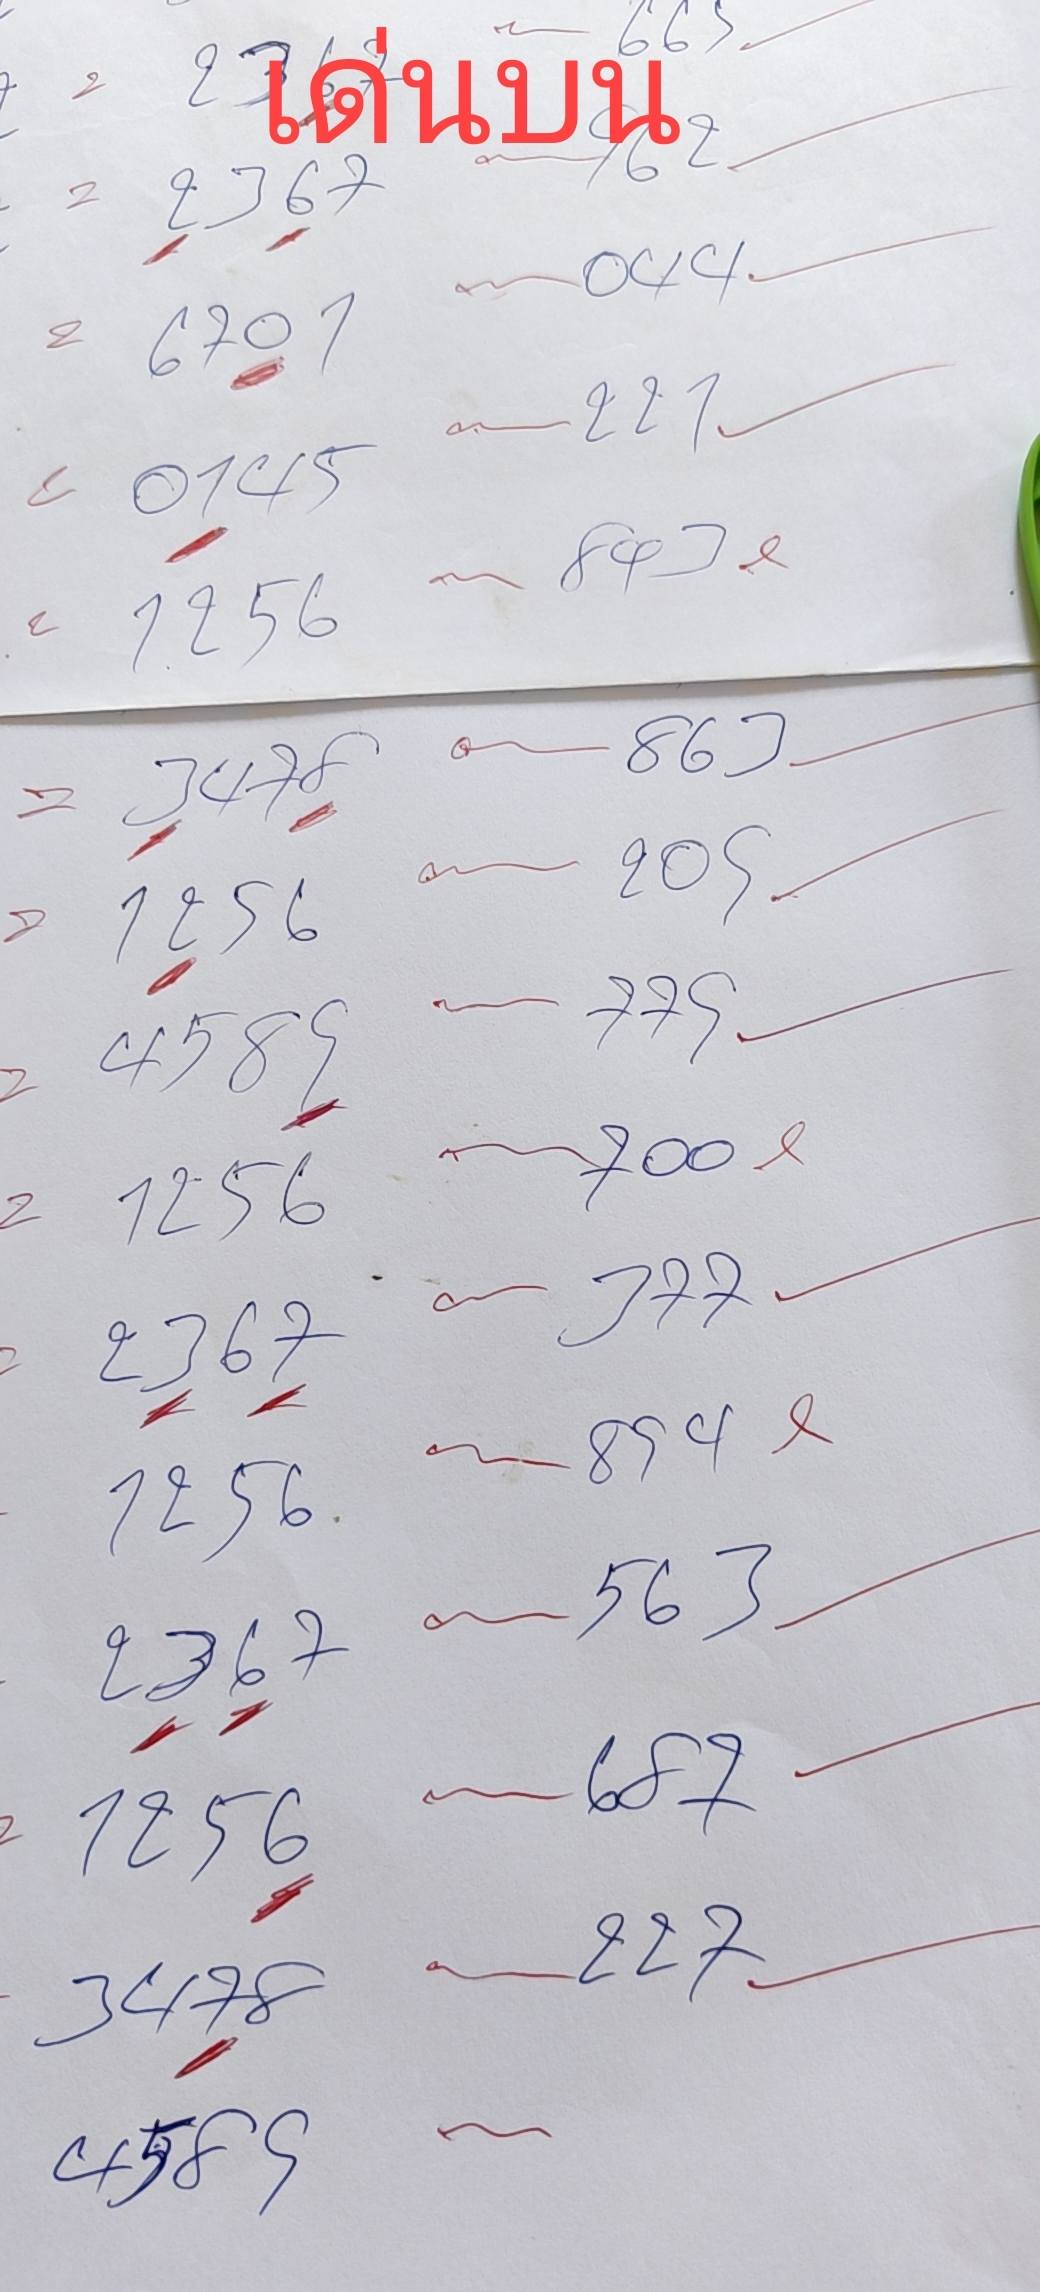 เด่นบน
= 2367 665
= 2367 962
= 6701 044
0145 221
1256 843
= 3478 863
= 1256 209
= 4589 779
= 1256 700
= 2367 377
1256 894
2367 563
= 1256 687
3478 227
4589